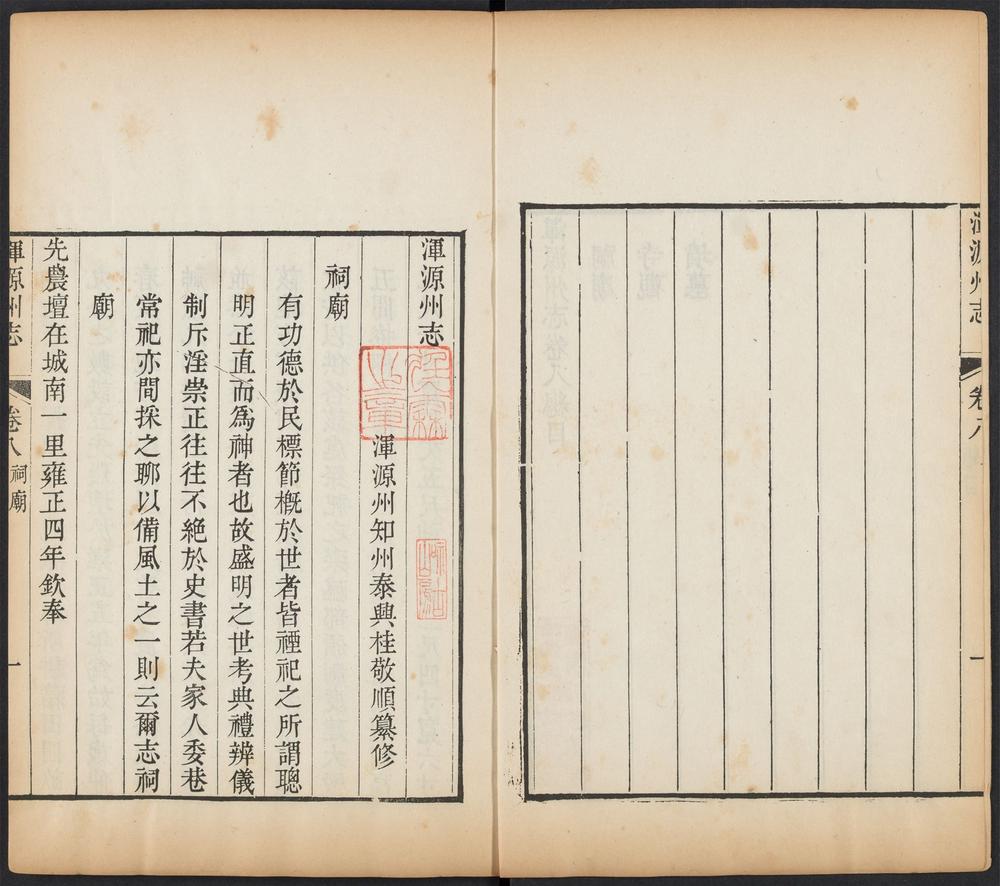 渾源州志
卷八
一
渾源州志
渾源州知州泰興桂敬順纂修
祠廟
有功德於民標節概於世者皆禋祀之所謂聰
明正直而爲神者也故盛明之世考典禮辨儀
制斥淫崇正往往不絕於史書若夫家人委巷
常祀亦間採之聊以備風土之一則云爾志祠
廟
先農壇在城南一里雍正四年欽奉
渾源州志
卷八
祠廟
一